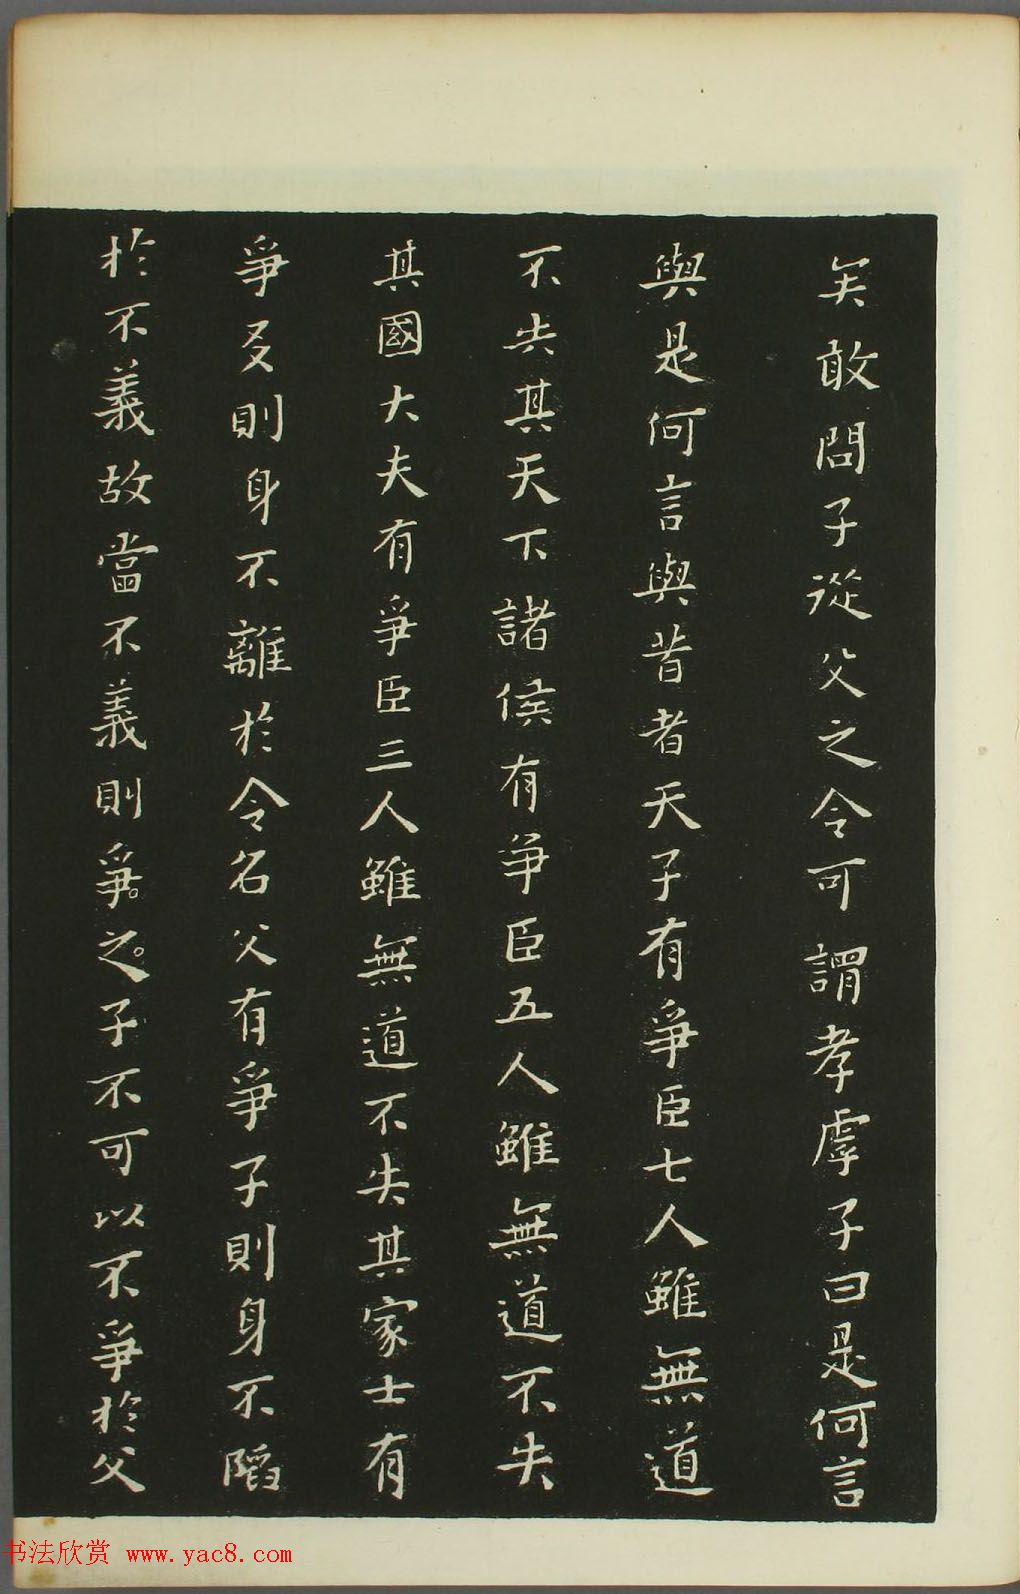 矣敢問子從父之令可謂孝虖子曰是何言
與是何言與昔者天子有爭臣七人雖無道
不失其天下諸侯有爭臣五人雖無道不失
其國大夫有爭臣三人雖無道不失其家士有
爭友則身不離於令名父有爭子則身不陷
於不義故當不義則爭之子不可以不爭於父
书法欣赏 www.yac8.com